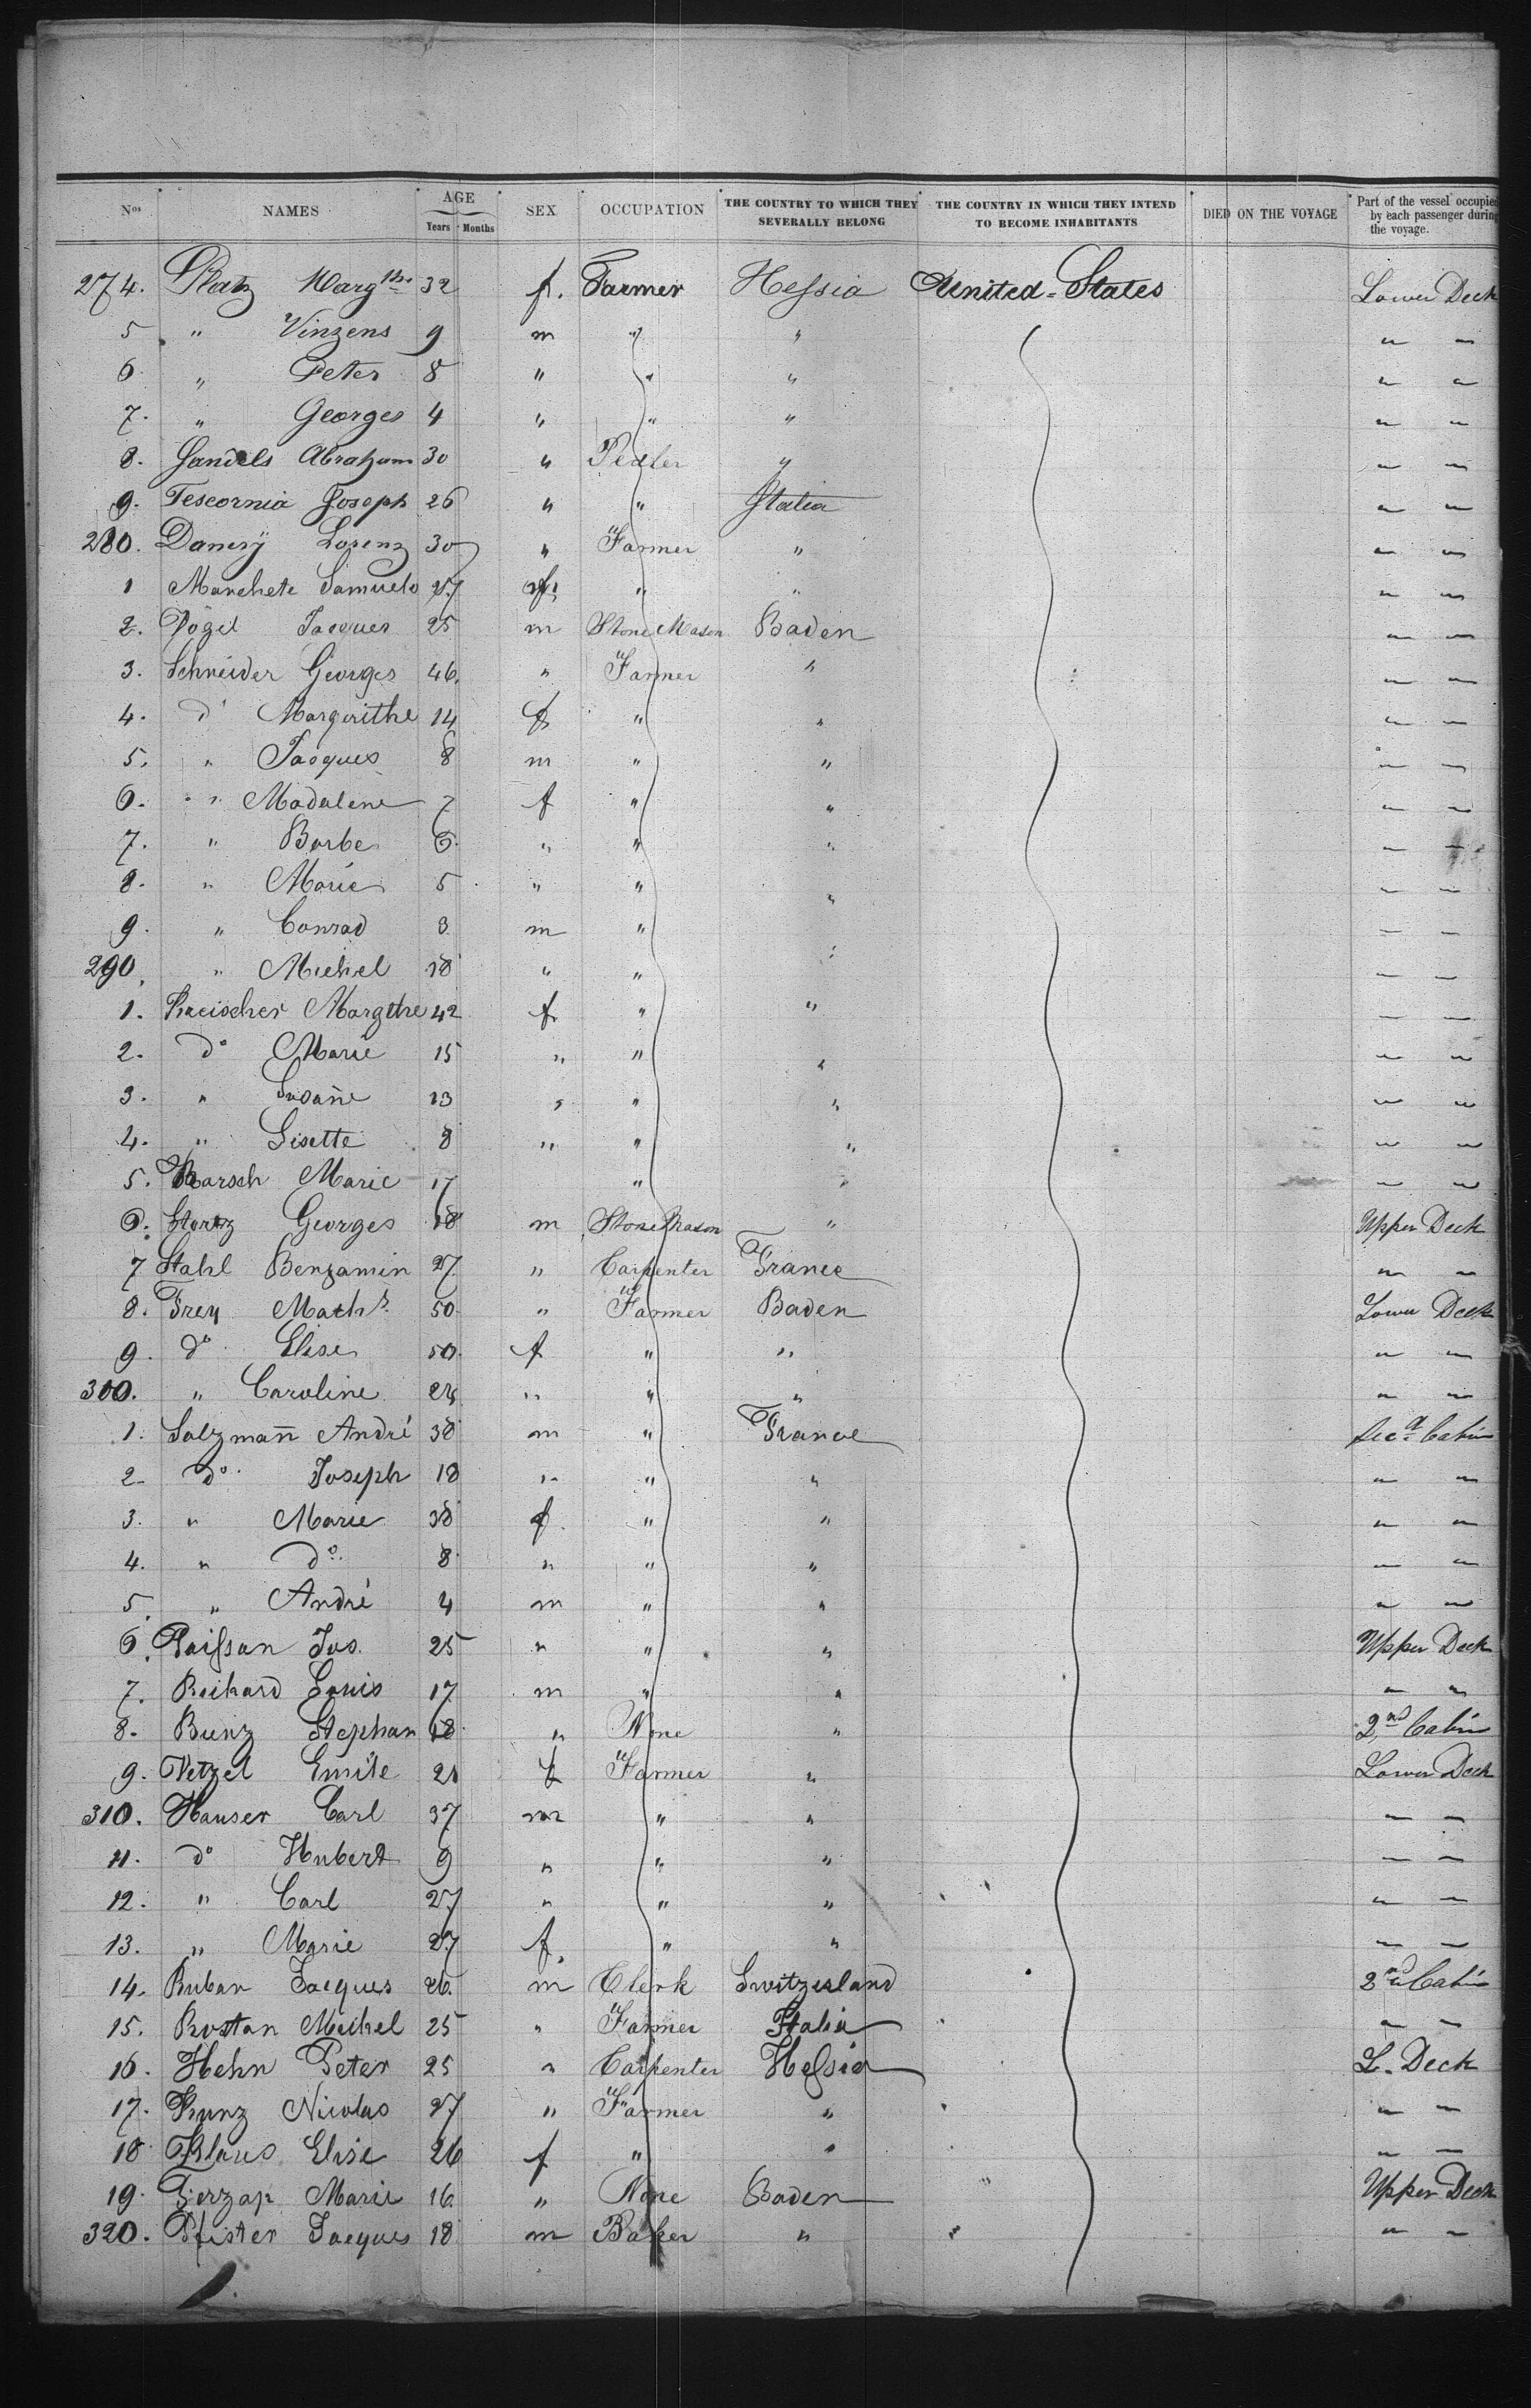 Nos NAMES AGE Years Months SEX OCCUPATION THE COUNTRY TO WHICH THEY SEVERALLY BELONG THE COUNTRY IN WHICH THEY INTEND TO BECOME INHABITANTS DIED ON THE VOYAGE Part of the vessel occupied by each passenger during the voyage.
274. Platz Margthe 32 f. Farmer Hessia United-States Lower Deck
5 " Vinzens 9 m " " " "
6. " Peter 8 " " " " "
7. " Georges 4 " " " " "
8. Jandels Abraham 30 " Pedler " " "
9. Tescornia Joseph 26 " " Italia " "
280. Lorenz 30 " Farmer " " "
1 Marchete Samuelo 27 f. " " " "
2. Vogel Jacques 25 m Stone Mason Baden " "
3. Schneider Georges 46. " Farmer " " "
4. do Margerithe 14 f. " " " "
5. " Jacques 8 m " " " "
6. " Madalene 7 f " " " "
7. " Barbe 6. " " " " "
8. " Marie 5 " " " " "
9. " Conrad 3 m " " " "
290. " Michel 18 " " " " "
1. Margthe 42 f. " " " "
2. do Marie 15 " " " " "
3. " Susañe 13 " " " " "
4. " Lisette 8 " " " " "
5. Marie 17 " " " "
6. Georges 18 m Stone Mason " Upper Deck
7 Stahl Benjamin 27. " Carpenter France " "
8. Frey Maths. 50. " Farmer Baden Lower Deck
9. do Elise 50. f " " " "
300. " Caroline " " " " "
1. Salzmañ André 38 m " France Secd Cabin
2. do Joseph 18 " " " " "
3. " Marie 38 f. " " " "
4. " do. 8 " " " " "
5. " André 4 m " " " "
6. Jos. 25 " " " Upper Deck
7. Louis 17 m " " " "
8. Bunz Stephan 18. " None " 2nd Cabin
9. Wetzel Emile f Farmer " Lower Deck
310. Hauser Carl 37 m " " " "
11. do Hubert 9 " " " " "
12. " Carl 27 " " " " "
13. " Marie 27 f. " " " "
14. Ruban Jacques 26. m Clerk Switzerland 2nd Cabin
15. Rostan Michel 25 " Farmer Italia " "
16. Hehn Peter 25 " Carpenter Hessia L. Deck
17. Kunz Nicolas 27 " Farmer " " "
18 Klaus Elise 26 f " " " "
19. Marie 16. " None Baden Upper Deck
320. Pfister Jacques 18 m Baker " " "